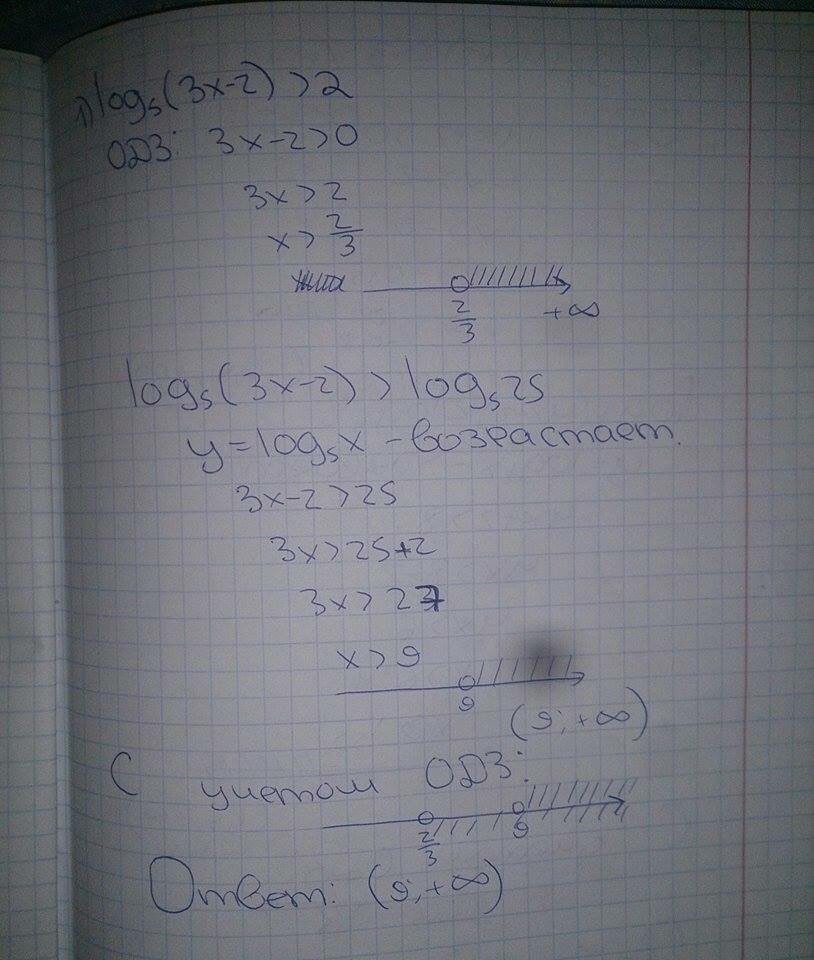 1) log₅(3x-2) > 2
ОДЗ: 3x-2>0
3x>2
x> 2/3
2/3 +∞
log₅(3x-2) > log₅25
y=log₅x - возрастает.
3x-2>25
3x>25+2
3x>27
x>9
9
(9; +∞)
С учетом ОДЗ:
2/3 9
Ответ: (9; +∞)